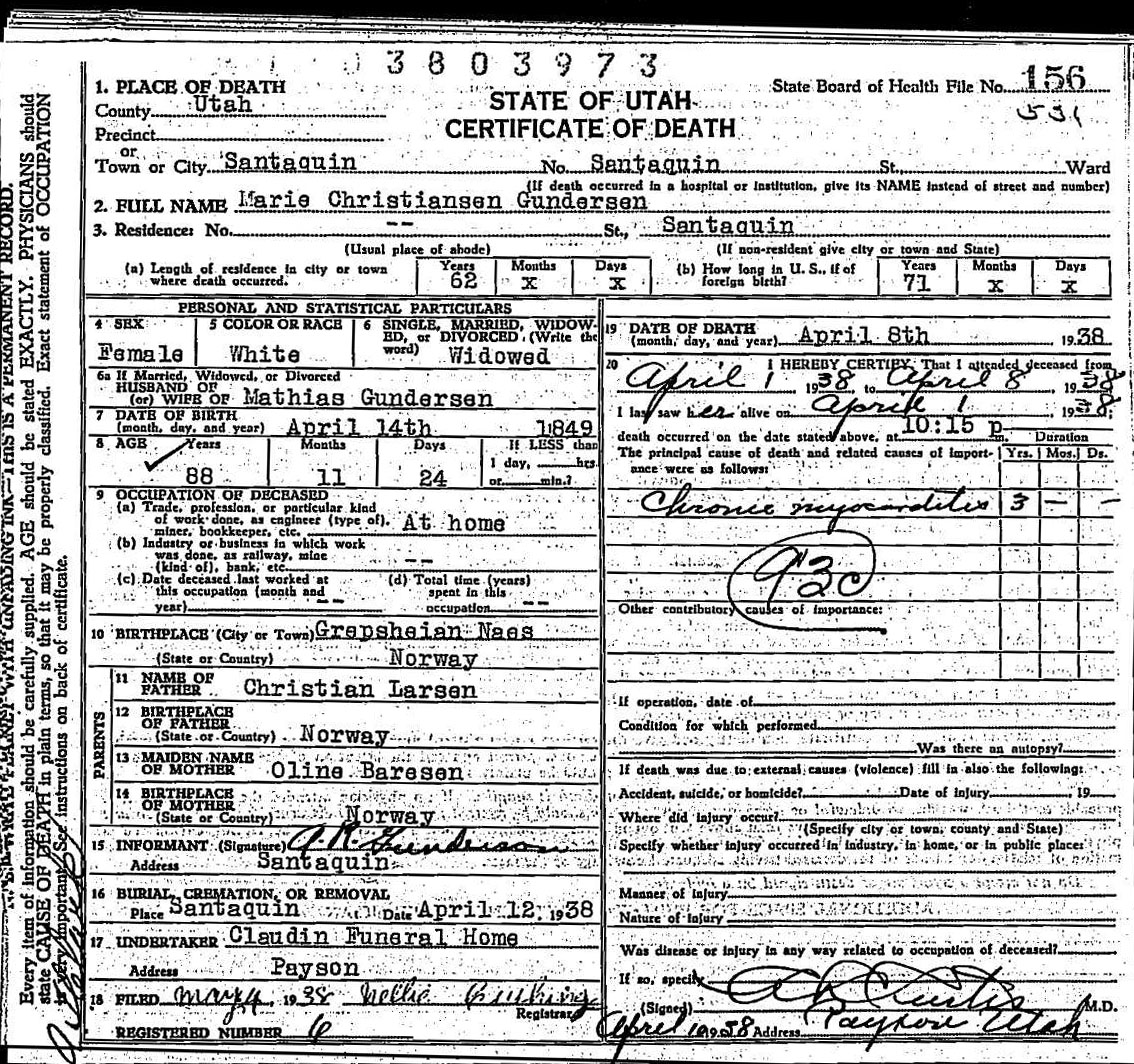 3803973
1. PLACE OF DEATH
State Board of Health File No. 156
531
County Utah
STATE OF UTAH
CERTIFICATE OF DEATH
Precinct
or
Town or City Santaquin No. Santaquin St., Ward
(If death occurred in a hospital or institution, give its NAME instead of street and number)
2. FULL NAME Marie Christiansen Gundersen
3. Residence: No. -- St., Santaquin
(Usual place of abode) (If non-resident give city or town and State)
(a) Length of residence in city or town where death occurred. Years 62 Months x Days x
(b) How long in U. S., if of foreign birth? Years 71 Months x Days x
PERSONAL AND STATISTICAL PARTICULARS
4 SEX Female
5 COLOR OR RACE White
6 SINGLE, MARRIED, WIDOWED, or DIVORCED. (Write the word) Widowed
6a If Married, Widowed, or Divorced
HUSBAND OF
(or) WIFE OF Mathias Gundersen
7 DATE OF BIRTH
(month, day, and year) April 14th 1849
8 AGE Years 88 Months 11 Days 24 If LESS than 1 day, hrs. or min.?
9 OCCUPATION OF DECEASED
(a) Trade, profession, or particular kind
of work done, as engineer (type of),
miner, bookkeeper, etc. At home
(b) Industry or business in which work
was done, as railway, mine
(kind of), bank, etc. --
(c) Date deceased last worked at
this occupation (month and
year) --
(d) Total time (years)
spent in this
occupation --
10 BIRTHPLACE (City or Town) Grepsheian Naes
(State or Country) Norway
PARENTS
11 NAME OF
FATHER Christian Larsen
12 BIRTHPLACE
OF FATHER
(State or Country) Norway
13 MAIDEN NAME
OF MOTHER Oline Baresen
14 BIRTHPLACE
OF MOTHER
(State or Country) Norway
15 INFORMANT (Signature) A. R. Gunderson
Address Santaquin
16 BURIAL, CREMATION, OR REMOVAL
Place Santaquin Date April 12, 1938
17 UNDERTAKER Claudin Funeral Home
Address Payson
18 FILED May 4, 1938 Nellie
Registrar
REGISTERED NUMBER 6
19 DATE OF DEATH
(month, day, and year) April 8th 1938
20 I HEREBY CERTIFY, That I attended deceased from
April 1 1938 to April 8, 1938
I last saw her alive on April 1, 1938,
death occurred on the date stated above, at 10:15 p m. Duration
The principal cause of death and related causes of importance were as follows: Yrs. Mos. Ds.
Chronic myocarditis 3 - -
93c
Other contributory causes of importance:
If operation, date of
Condition for which performed
Was there an autopsy?
If death was due to external causes (violence) fill in also the following:
Accident, suicide, or homicide? Date of injury, 19
Where did injury occur?
(Specify city or town, county and State)
Specify whether injury occurred in industry, in home, or in public places
Manner of Injury
Nature of Injury
Was disease or injury in any way related to occupation of deceased?
If so, specify
(Signed) Curtis M.D.
April 1938 Address Payson Utah
Every item of information should be carefully supplied. AGE should be stated EXACTLY. PHYSICIANS should
state CAUSE OF DEATH in plain terms, so that it may be properly classified. Exact statement of OCCUPATION
is very important. See instructions on back of certificate.